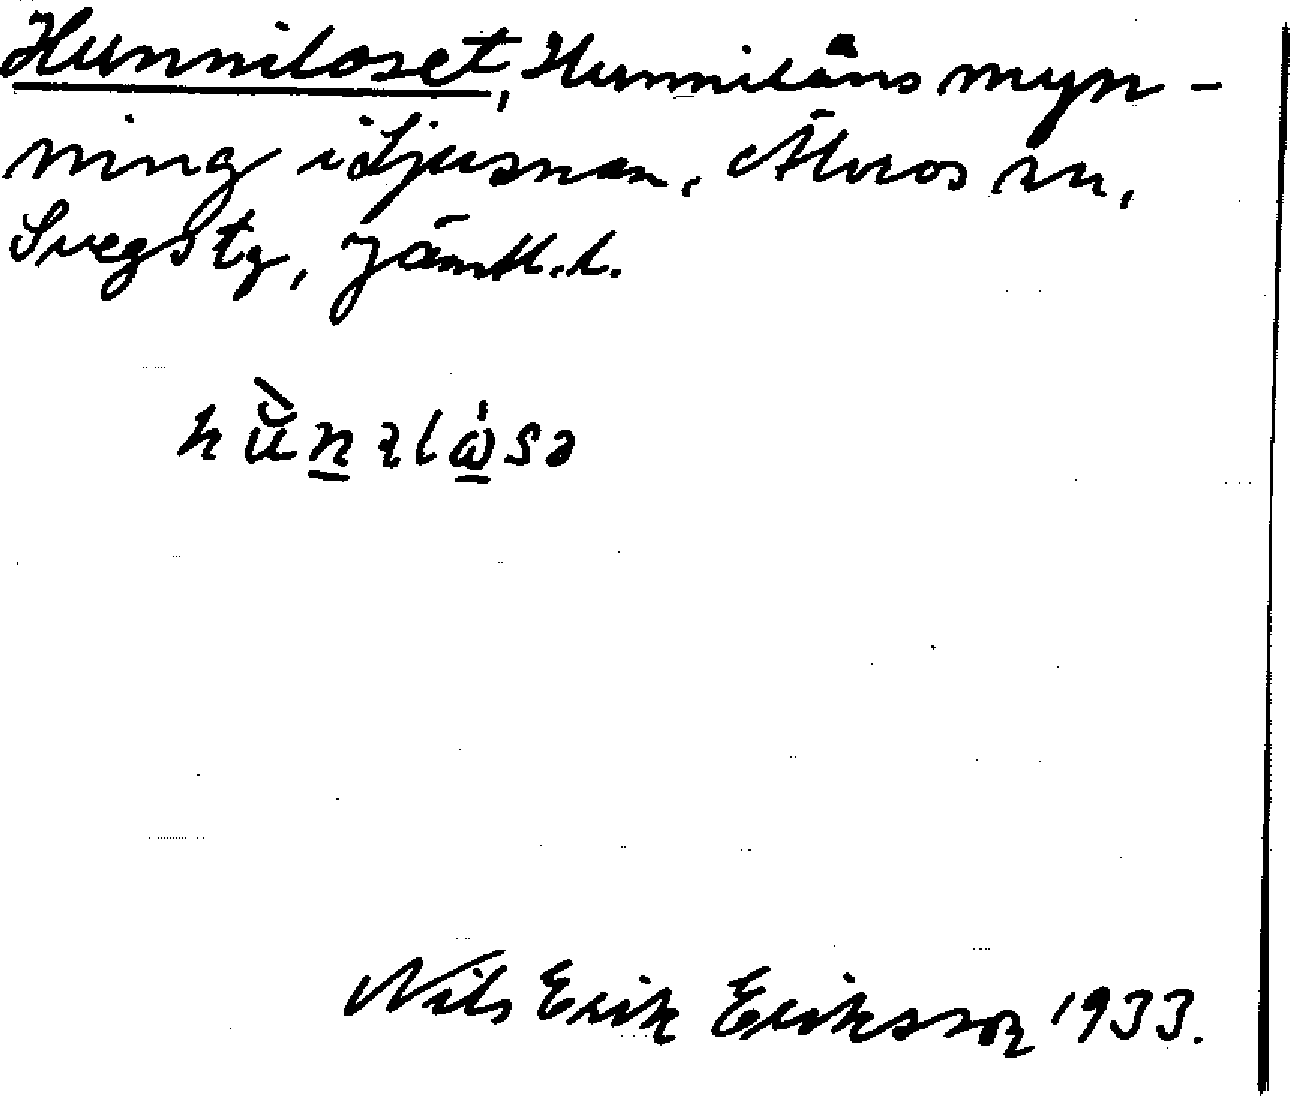 Hunniloset, Hunnilåns myn-
ning i Ljusnan, Älvros sn,
Svegs tg, Jämtl. l.
Nils Erik Eriksson 1933.